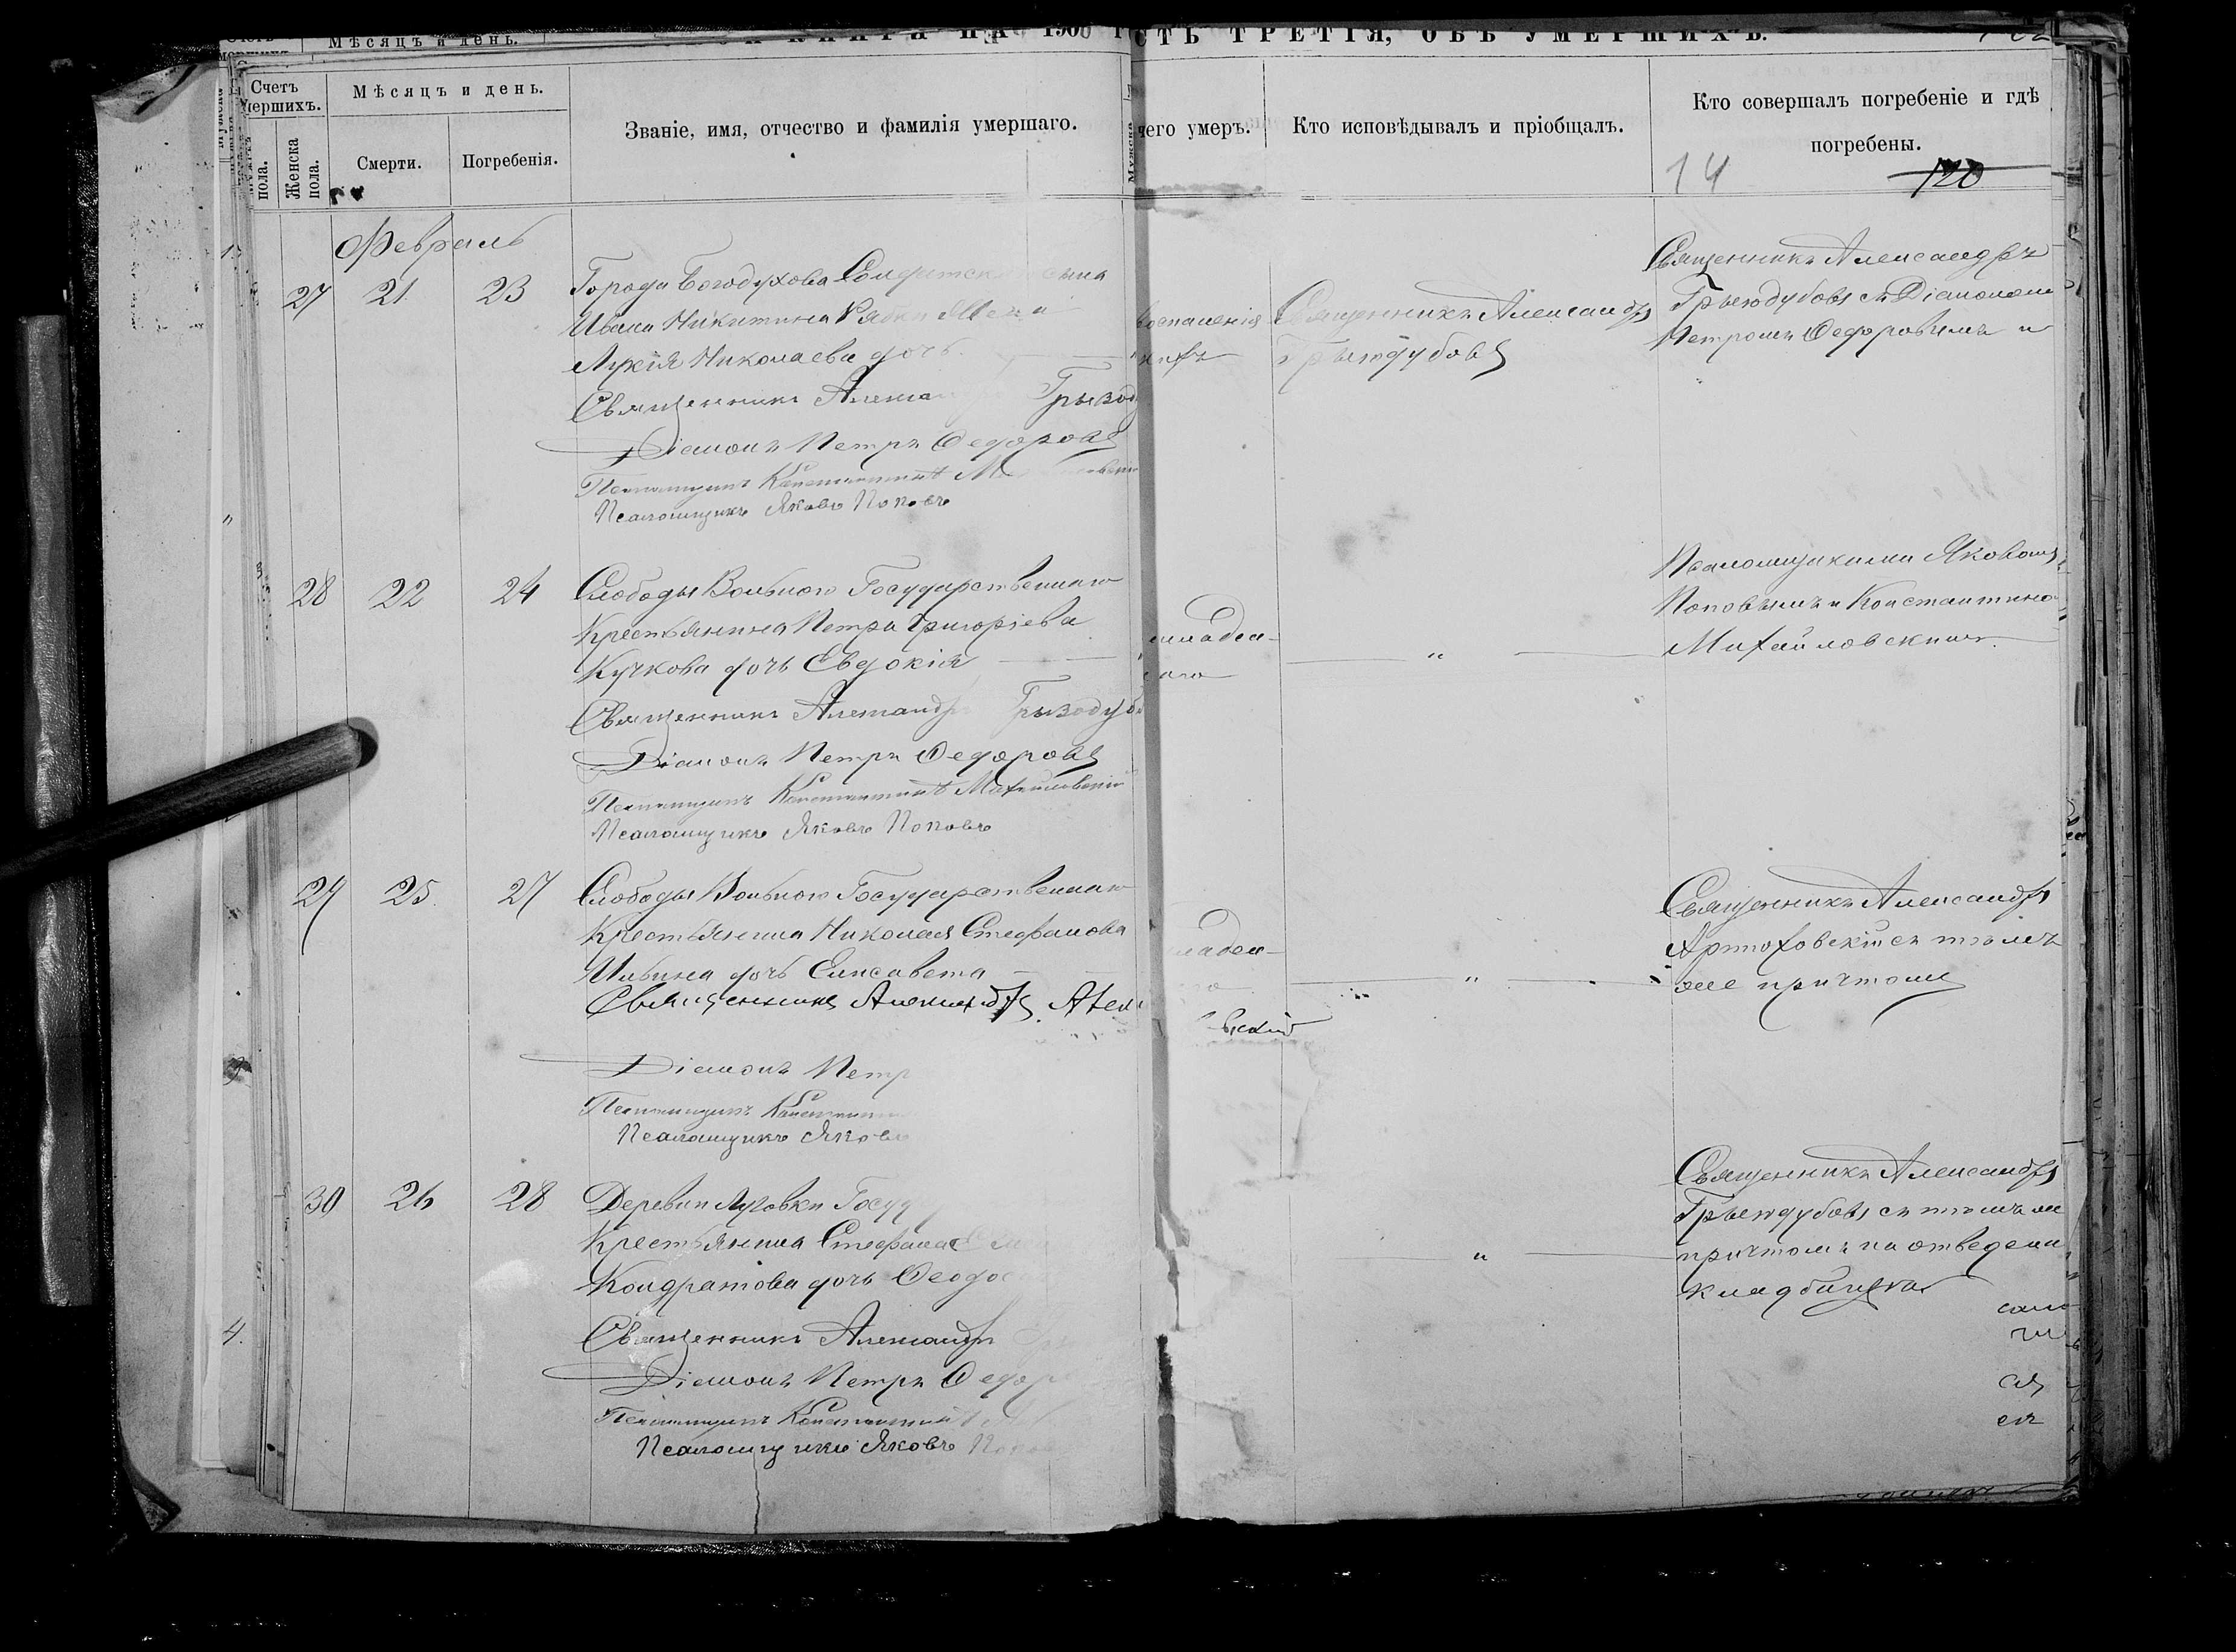 КНИГА НА 1900
СТЬ ТРЕТІЯ, ОБЪ УМЕРШИХЪ.
Мѣсяцъ и день.
Счетъ
умершихъ.
Мѣсяцъ и день.
Званіе, имя, отчество и фамилія умершаго.
чего умеръ.
Кто исповѣдывалъ и пріобщалъ.
Кто совершалъ погребеніе и гдѣ
погребены.
пола.
Женска
пола.
Смерти.
Погребенія.
14
120
Февраль
27 21 23
Города Богодухова Солдатск сына
Ивана Никитина Рябки
Лукія Николаева дочь
Священникъ Александ Грызод
Діаконъ Петръ Федоровъ
Псаломщикъ Константинъ
Псаломщикъ Яковъ Поповъ
воспаленія
Священникъ Александръ
Грызодубовъ
Священникъ Александръ
Грызодубовъ съ Діакономъ
Петромъ Федоровымъ и
28 22 24
Слободы Вольного Государственнаго
Крестьянина Петра Григоріева
Кучкова дочь Евдокія
Священникъ Александръ Грызодубо
Діаконъ Петръ Федоровъ
Псаломщикъ Константинъ Михайловскій
Псаломщикъ Яковъ Поповъ
младен-
"
Псаломщиками Яковомъ
Поповымъ и Константино
Михайловским.
29 25 27
Слободы Вольного Государственнаго
Крестьянина Николая Стефанова
Ильина дочь Елисавета
Священникъ Александръ
Діаконъ Петр
Псаломщикъ Константин
Псаломщикъ Яковъ
младен-
вскій
"
Священникъ Александръ
съ тѣмъ
же причтомъ
30 26 28
Деревни Луговки Госуд
Крестьянина Стефана
Кондратова дочь Феодос
Священникъ Александръ
Діаконъ Петръ Федор
Псаломщикъ Константинъ
Псаломщикъ Яковъ Попов
"
Священникъ Александръ
Грызодубовъ съ тѣмъ же
причтомъ на отведен
кладбищѣ